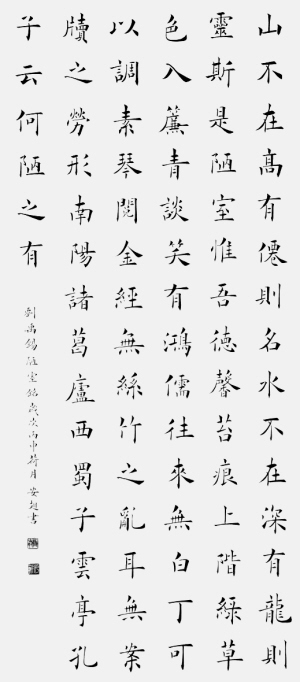 山不在高有僊則名水不在深有龍則
靈斯是陋室惟吾德馨苔痕上階綠草
色入簾青談笑有鴻儒往來無白丁可
以調素琴閱金經無絲竹之亂耳無案
牘之勞形南陽諸葛廬西蜀子雲亭孔
子云何陋之有
劉禹錫陋室銘歲次丙申荷月安書